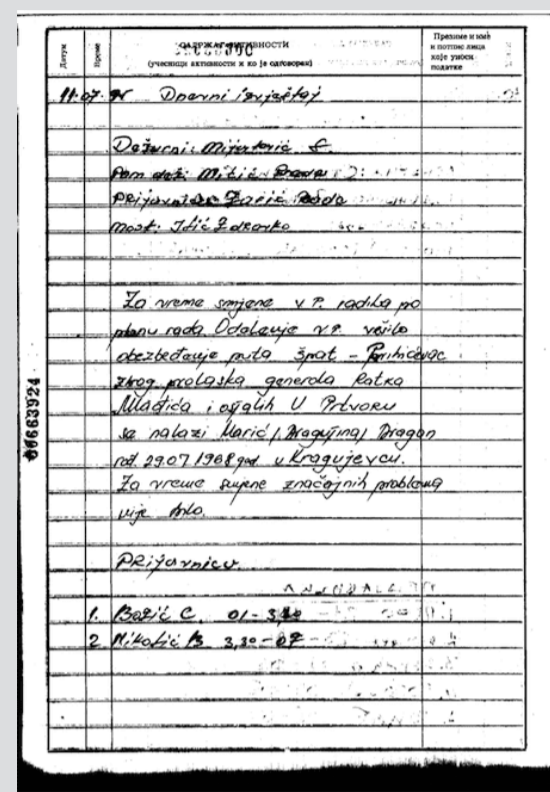 Датум
Време
САДРЖАЈ АКТИВНОСТИ
(учесници активности и ко је одговоран)
Презиме и име
и потпис лица
које уноси
податке
11.07.95 Dnevni izvještaj
Dežurni: Mijatović S.
Pom dež: Mitić
Prijavnica: Zarić Rado
most: Ilić Zdravko
Za vreme smjene v.p. radila po
planu rada Odelenje v.p. vršilo
obezbeđenje puta Špat -
zbog prolaska generala Ratka
Mladića i ostalih U Pritvoru
se nalazi Marić /Dragutina/ Dragan
rođ. 29.07.1968 god. u Kragujevcu.
Za vreme smjene značajnih problema
nije bilo.
Prijavnica
1. Božić C. 01 - 3,30
2 Nikolić B 3,30 - 07
00663924